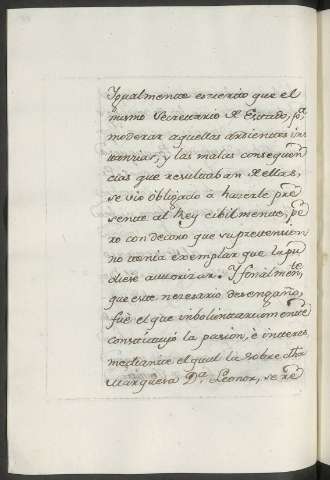 Igualmente es cierto que el
mismo Secretario de Estado, p.ª
moderar aquellas ardientes ins
tanzias, y las malas consequen
cias que resultaban de ellas,
se vio obligado à hacerle pre
sente al Rey cibilmente, pe
ro con decoro que su pretension
no tenia exemplar que la pu
diese autorizar. Y finalmen.te
que este necesario desengaño,
fuè el que imbolintariamente
constituyó la pasion, è interes
mediante el qual la sobre dha
Marquesa D.ª Leonor, se re